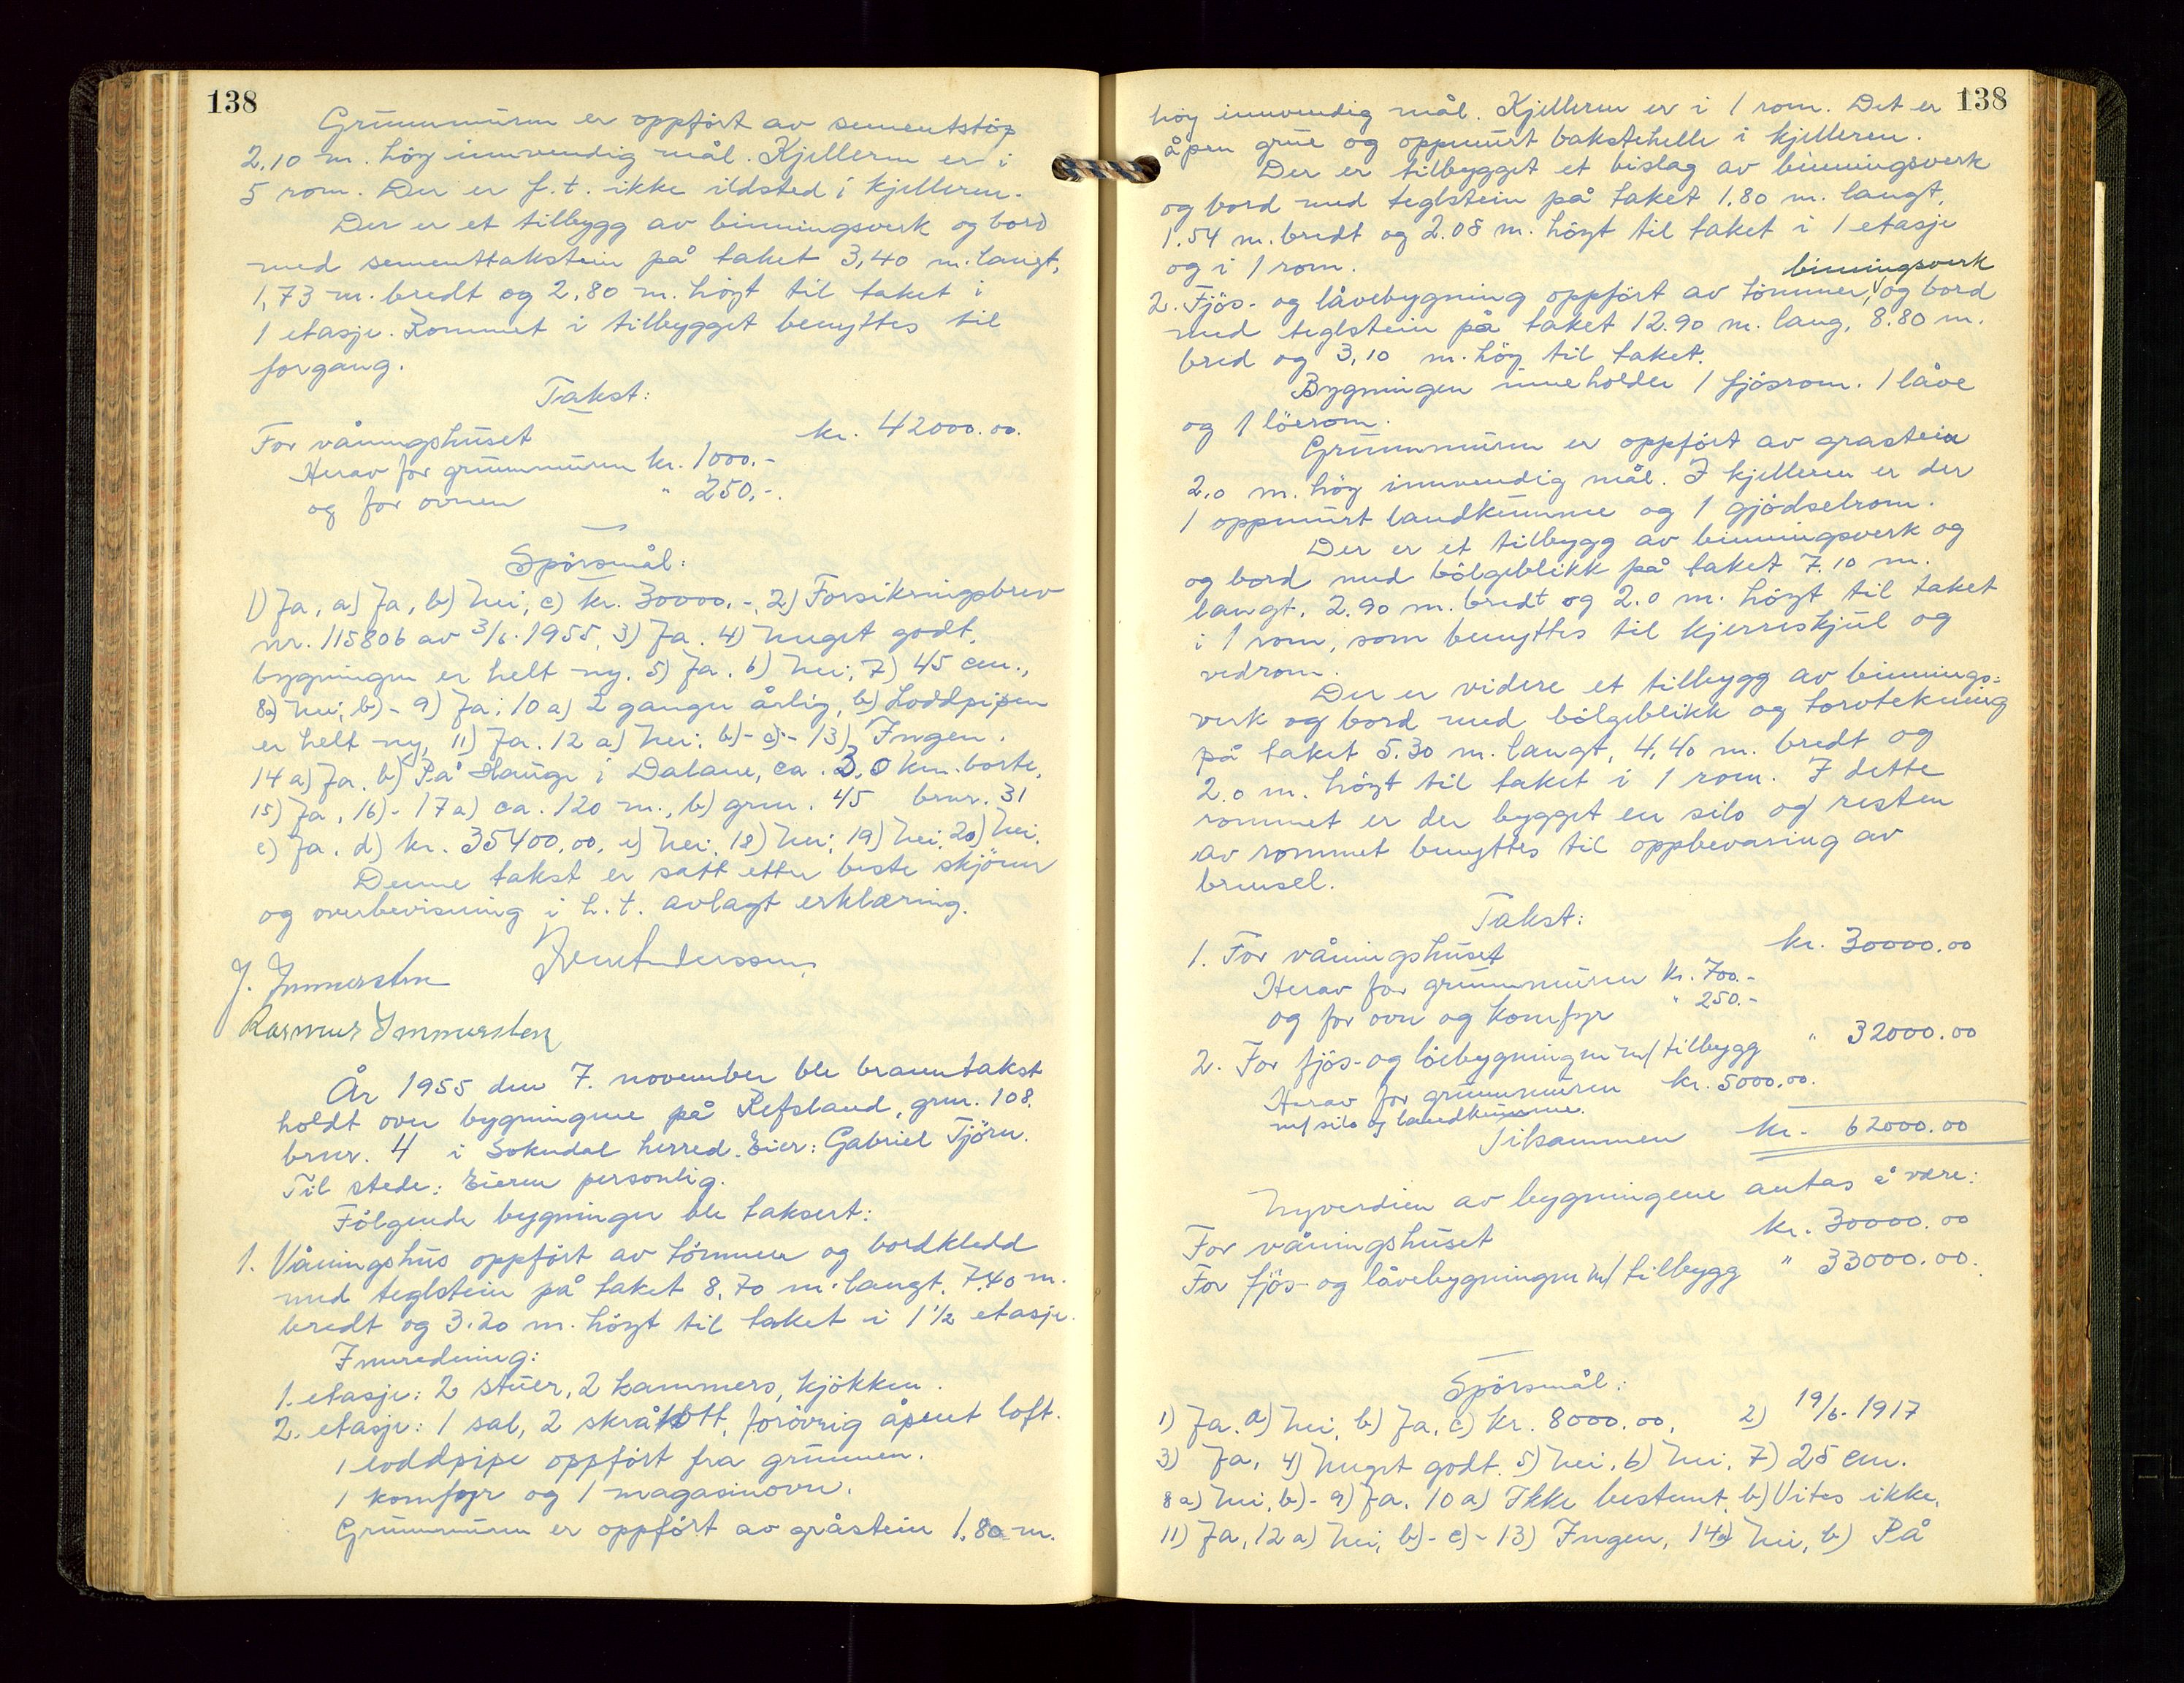 138
Grunnmuren er oppfört av sementstöp
2,10 m. höy innvendig mål. Kjelleren er i
5 rom. Der er f.t. ikke ildsted i kjelleren.
Der er et tilbygg av binningsverk og bord
med sementtakstein på taket 3,40 m. langt,
1,73 m. bredt og 2,80 m. höyt til taket i
1 etasje. Rommet i tilbygget benyttes til
forgang.
Takst:
For våningshuset kr. 42000.00.
Herav for grunnmuren kr. 1000.-
og for ovnen " 250,-.
Spörsmål:
1) Ja, a) Ja, b) Nei, c) kr. 30000.-, 2) Forsikringsbrev
nr. 115806 av 3/6. 1955, 3) Ja. 4) Meget godt,
bygningen er helt ny. 5) Ja. 6) Nei; 7) 45 cm.,
8a) Nei; b) - 9) Ja; 10 a) 2 ganger årlig, b) Loddpipen
er helt ny, 11) Ja. 12 a) Nei; b)- c)- 13) Ingen.
14 a) Ja. b) På Hauge i Dalane, ca. 3,0 km. borte,
15) Ja, 16)- 17a) ca. 120 m., b) gnr. 45 bnr. 31
c) Ja. d) kr. 35400,00, e) Nei; 18) Nei; 19) Nei, 20) Nei.
Denne takst er satt etter beste skjönn
og overbevisning i h.t. avlagt erklæring.
J. Immerstein
Rasmus Immerstein
År 1955 den 7. november ble branntakst
holdt over bygningene på Refsland, gnr. 108.
brnr. 4 i Sokndal herred. Eier: Gabriel Tjörn.
Til stede: Eieren personlig.
Fölgende bygninger ble taksert:
1. Våningshus oppfört av tömmer og bordkledd
med teglstein på taket 8,70 m. langt, 7,40 m.
bredt og 3.20 m. höyt til taket i 1 1/2 etasje.
Innredning:
1. etasje: 2 stuer, 2 kammers, kjökken.
2. etasje: 1 sal, 2 skråkott, forövrig åpent loft.
1 loddpipe oppfört fra grunnen.
1 komfyr og 1 magasinovn.
Grunnmuren er oppfört av gråstein 1,80 m.
138
höy innvendig mål. Kjelleren er i 1 rom. Det er
åpen grue og oppmurt bakstehelle i kjelleren.
Der er tilbygget et bislag av binningsverk
og bord med teglstein på taket 1.80 m. langt,
1.54 m. bredt og 2.08 m. höyt til taket i 1 etasje
og i 1 rom.
binningsverk
2. Fjös- og låvebygning oppfört av tömmer, og bord
med teglstein på taket 12.90 m. lang, 8.80 m.
bred og 3,10 m. höy til taket.
Bygningen inneholder 1 fjösrom. 1 låve
og 1 löerom.
Grunnmuren er oppfört av grastein
2,0 m. höy innvendig mål. I kjelleren er der
1 oppmurt landkumme og 1 gjödselrom.
Der er et tilbygg av binningsverk og
og bord med bölgeblikk på taket 7.10 m.
langt, 2.90 m. bredt og 2.0 m. höyt til taket
i 1 rom, som benyttes til kjerreskjul og
vedrom.
Der er videre et tilbygg av binnings-
verk og bord med bölgeblikk og torvtekning
på taket 5.30 m. langt, 4,40 m. bredt og
2.0 m. höyt til taket i 1 rom. I dette
rommet er der bygget en silo og resten
av rommet benyttes til oppbevaring av
brensel.
Takst:
1. For våningshuset kr. 30000.00
Herav for grunnmuren kr. 700.-
og for ovn og komfyr " 250.-
2. For fjös- og löebygningen m/ tilbygg " 32000.00
Herav for grunnmuren kr. 5000.00.
m/ silo og landkumme.
Tilsammen kr. 62000.00
Nyverdien av bygningene antas å være:
For våningshuset kr. 30000.00
For fjös- og låvebygningen m/ tilbygg " 33000.00.
Spörsmål:
1) Ja. a) Nei, b) Ja, c) kr. 8000.00, 2) 19/6. 1917
3) Ja, 4) Meget godt. 5) Nei, 6) Nei, 7) 25 cm.
8 a) Nei, b)- 9) Ja, 10 a) Ikke bestemt, b) Vites ikke,
11) Ja, 12 a) Nei, b)- c)- 13) Ingen, 14a) Nei, b) På